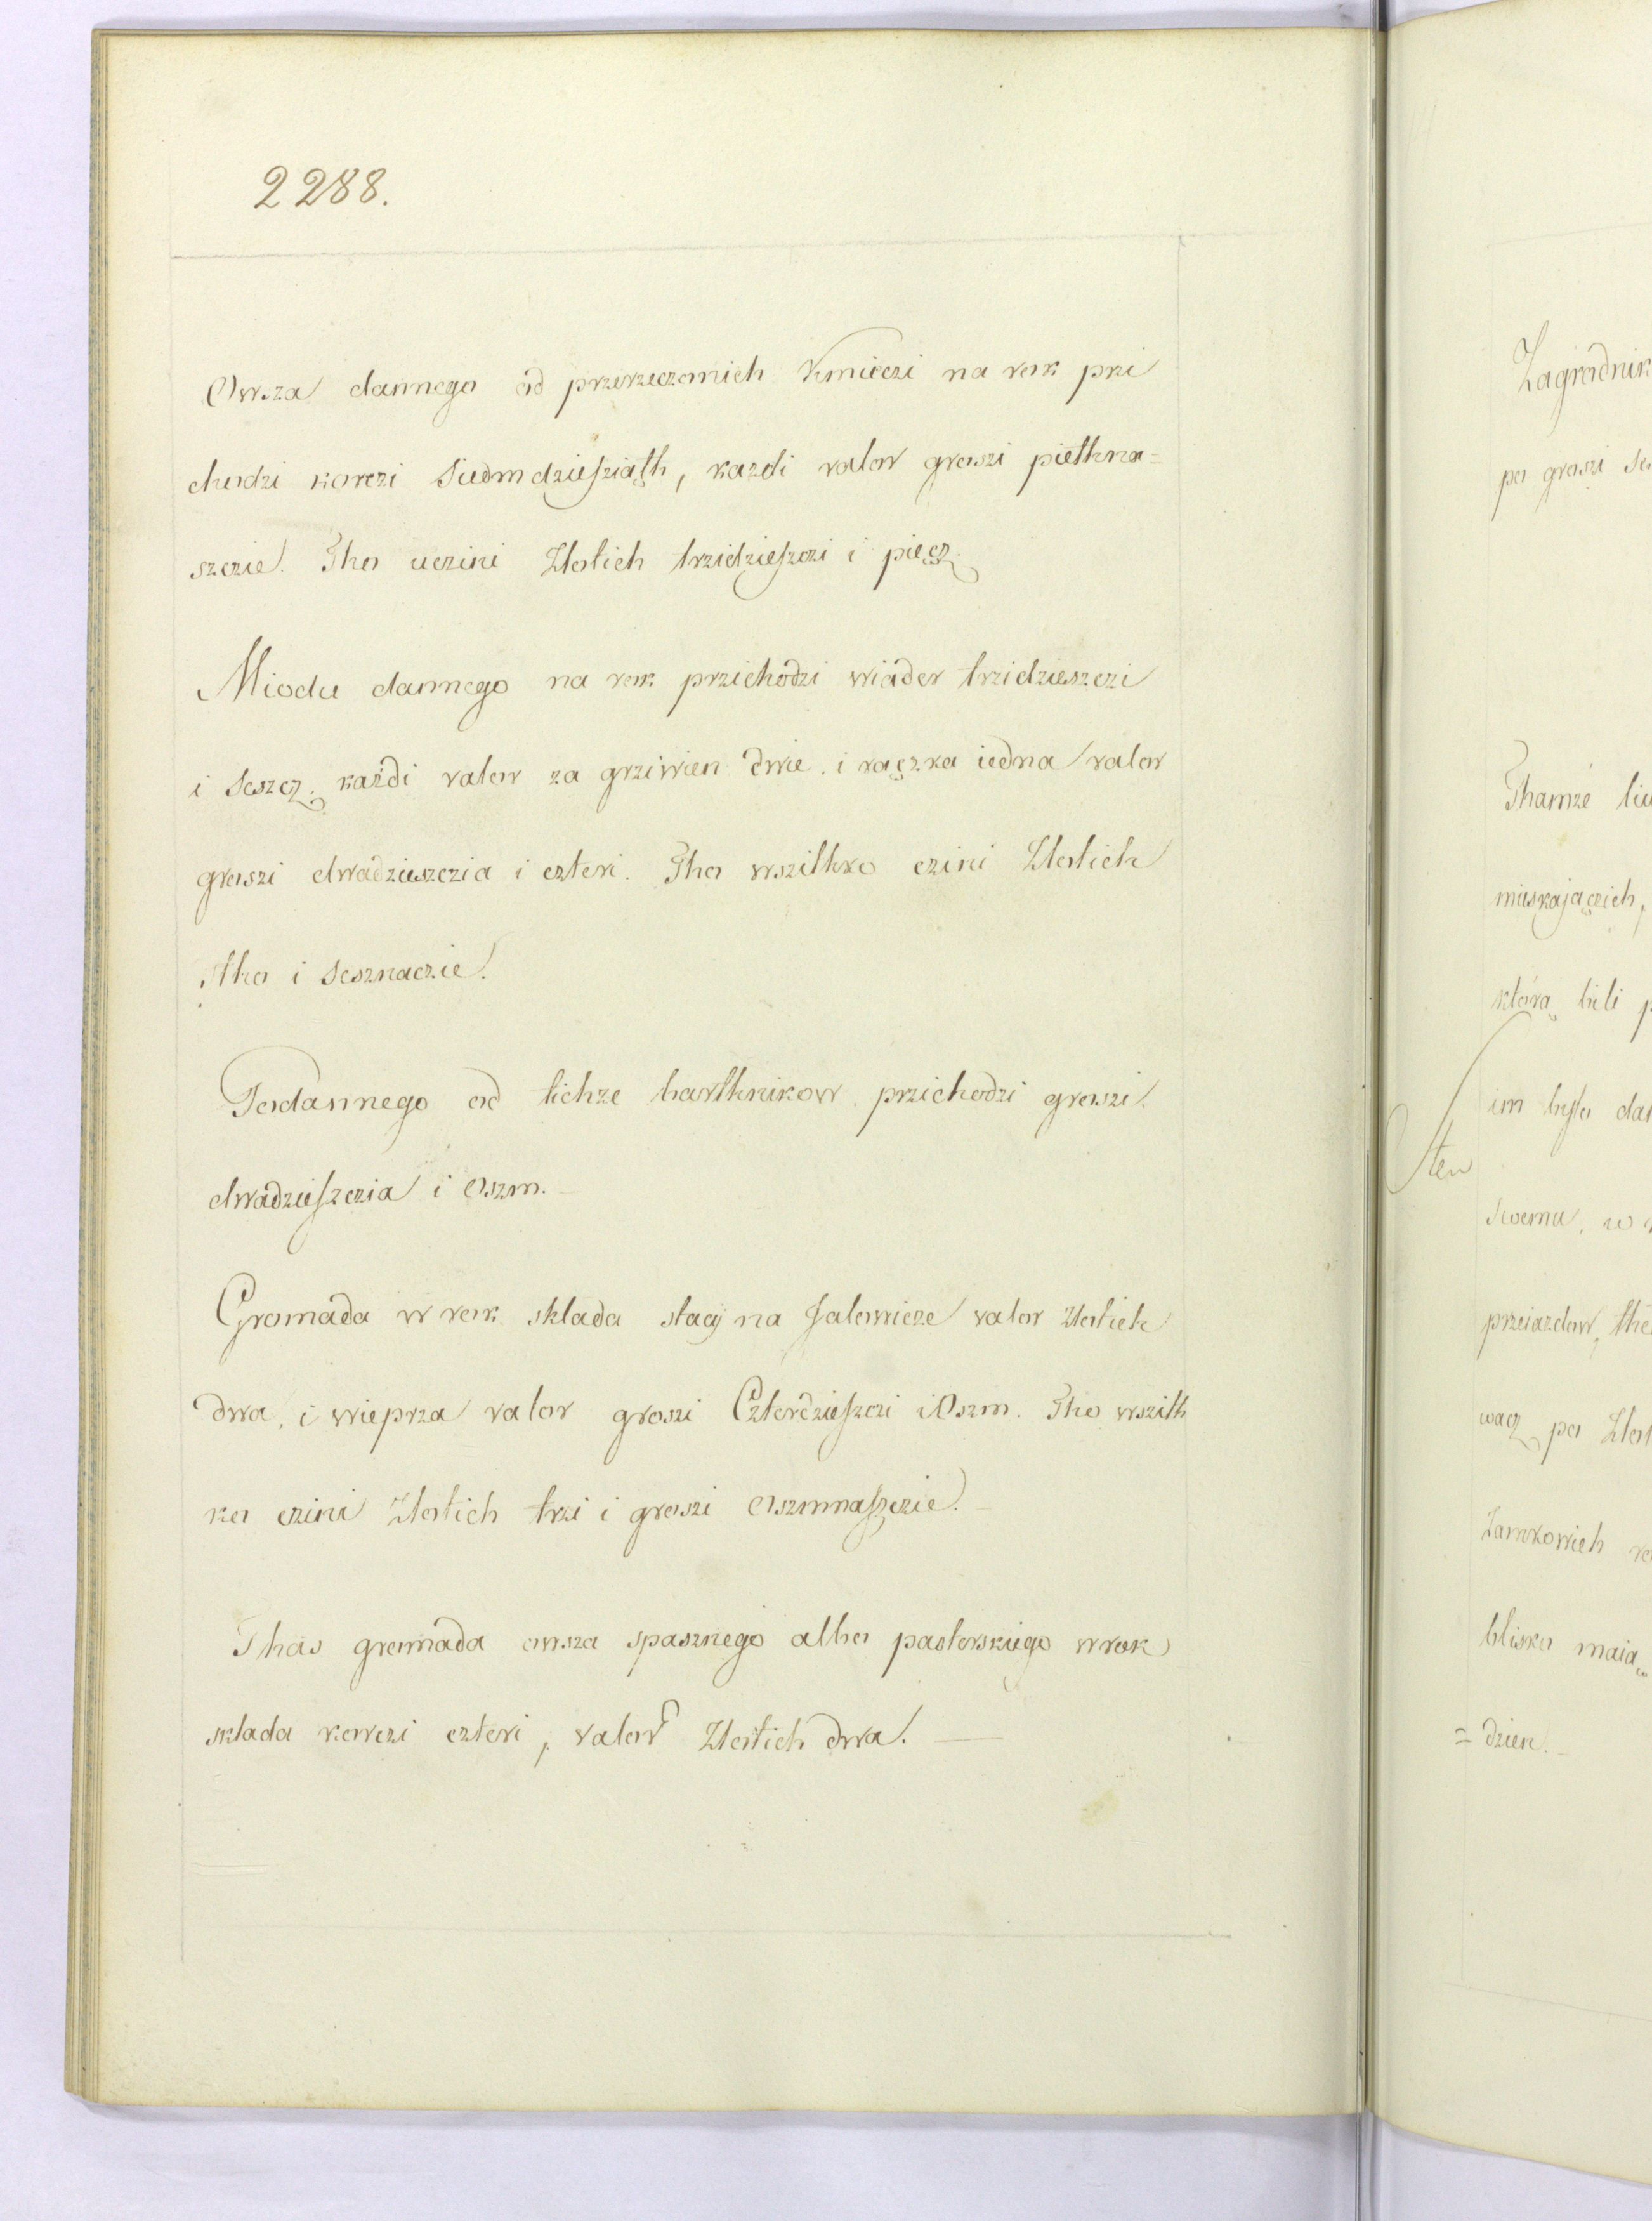 2288.
Owsza dannego od przerzeczonich Kmieczi na rok pri
chodzi korczi Siedmdzieſziąth, kazdi valor groszi piethna=
szczie. Tho uczini Zlotich trzidzieſzczi i pięcz.
Miodu dannego na rok przichodzi wiader trzidzieszczi
i Seszcz. każdi valor za grziwien dwie. i rączka iedna valor
groszi dwadzieszczia i czteri. Tho wszithko czini Zlotich
stho i Sesznaczie.
Podannego od tichze barthnikow przichodzi groszi.
dwadzieſzczia i Oszm.
Gromada w rok sklada staçÿ na Jalowicze valor Zlotich
dwa, i wieprza valor groszi Czterdzieſzczi i Oszm. Tho wszith
ko czini Zlotich trzi i groszi Oszmnaſzczie.
Thas gromada owsza spasznego albo pastorskiego w rok
sklada korczi czteri, valor Zlotich dwa.
Zagrodnik
po groszi
Thamze
mieskającich,
którą bili
im było
ten
Swemu, w
przeiazdow,
wacz po
Zamkowich
blisko maią
= dzien.